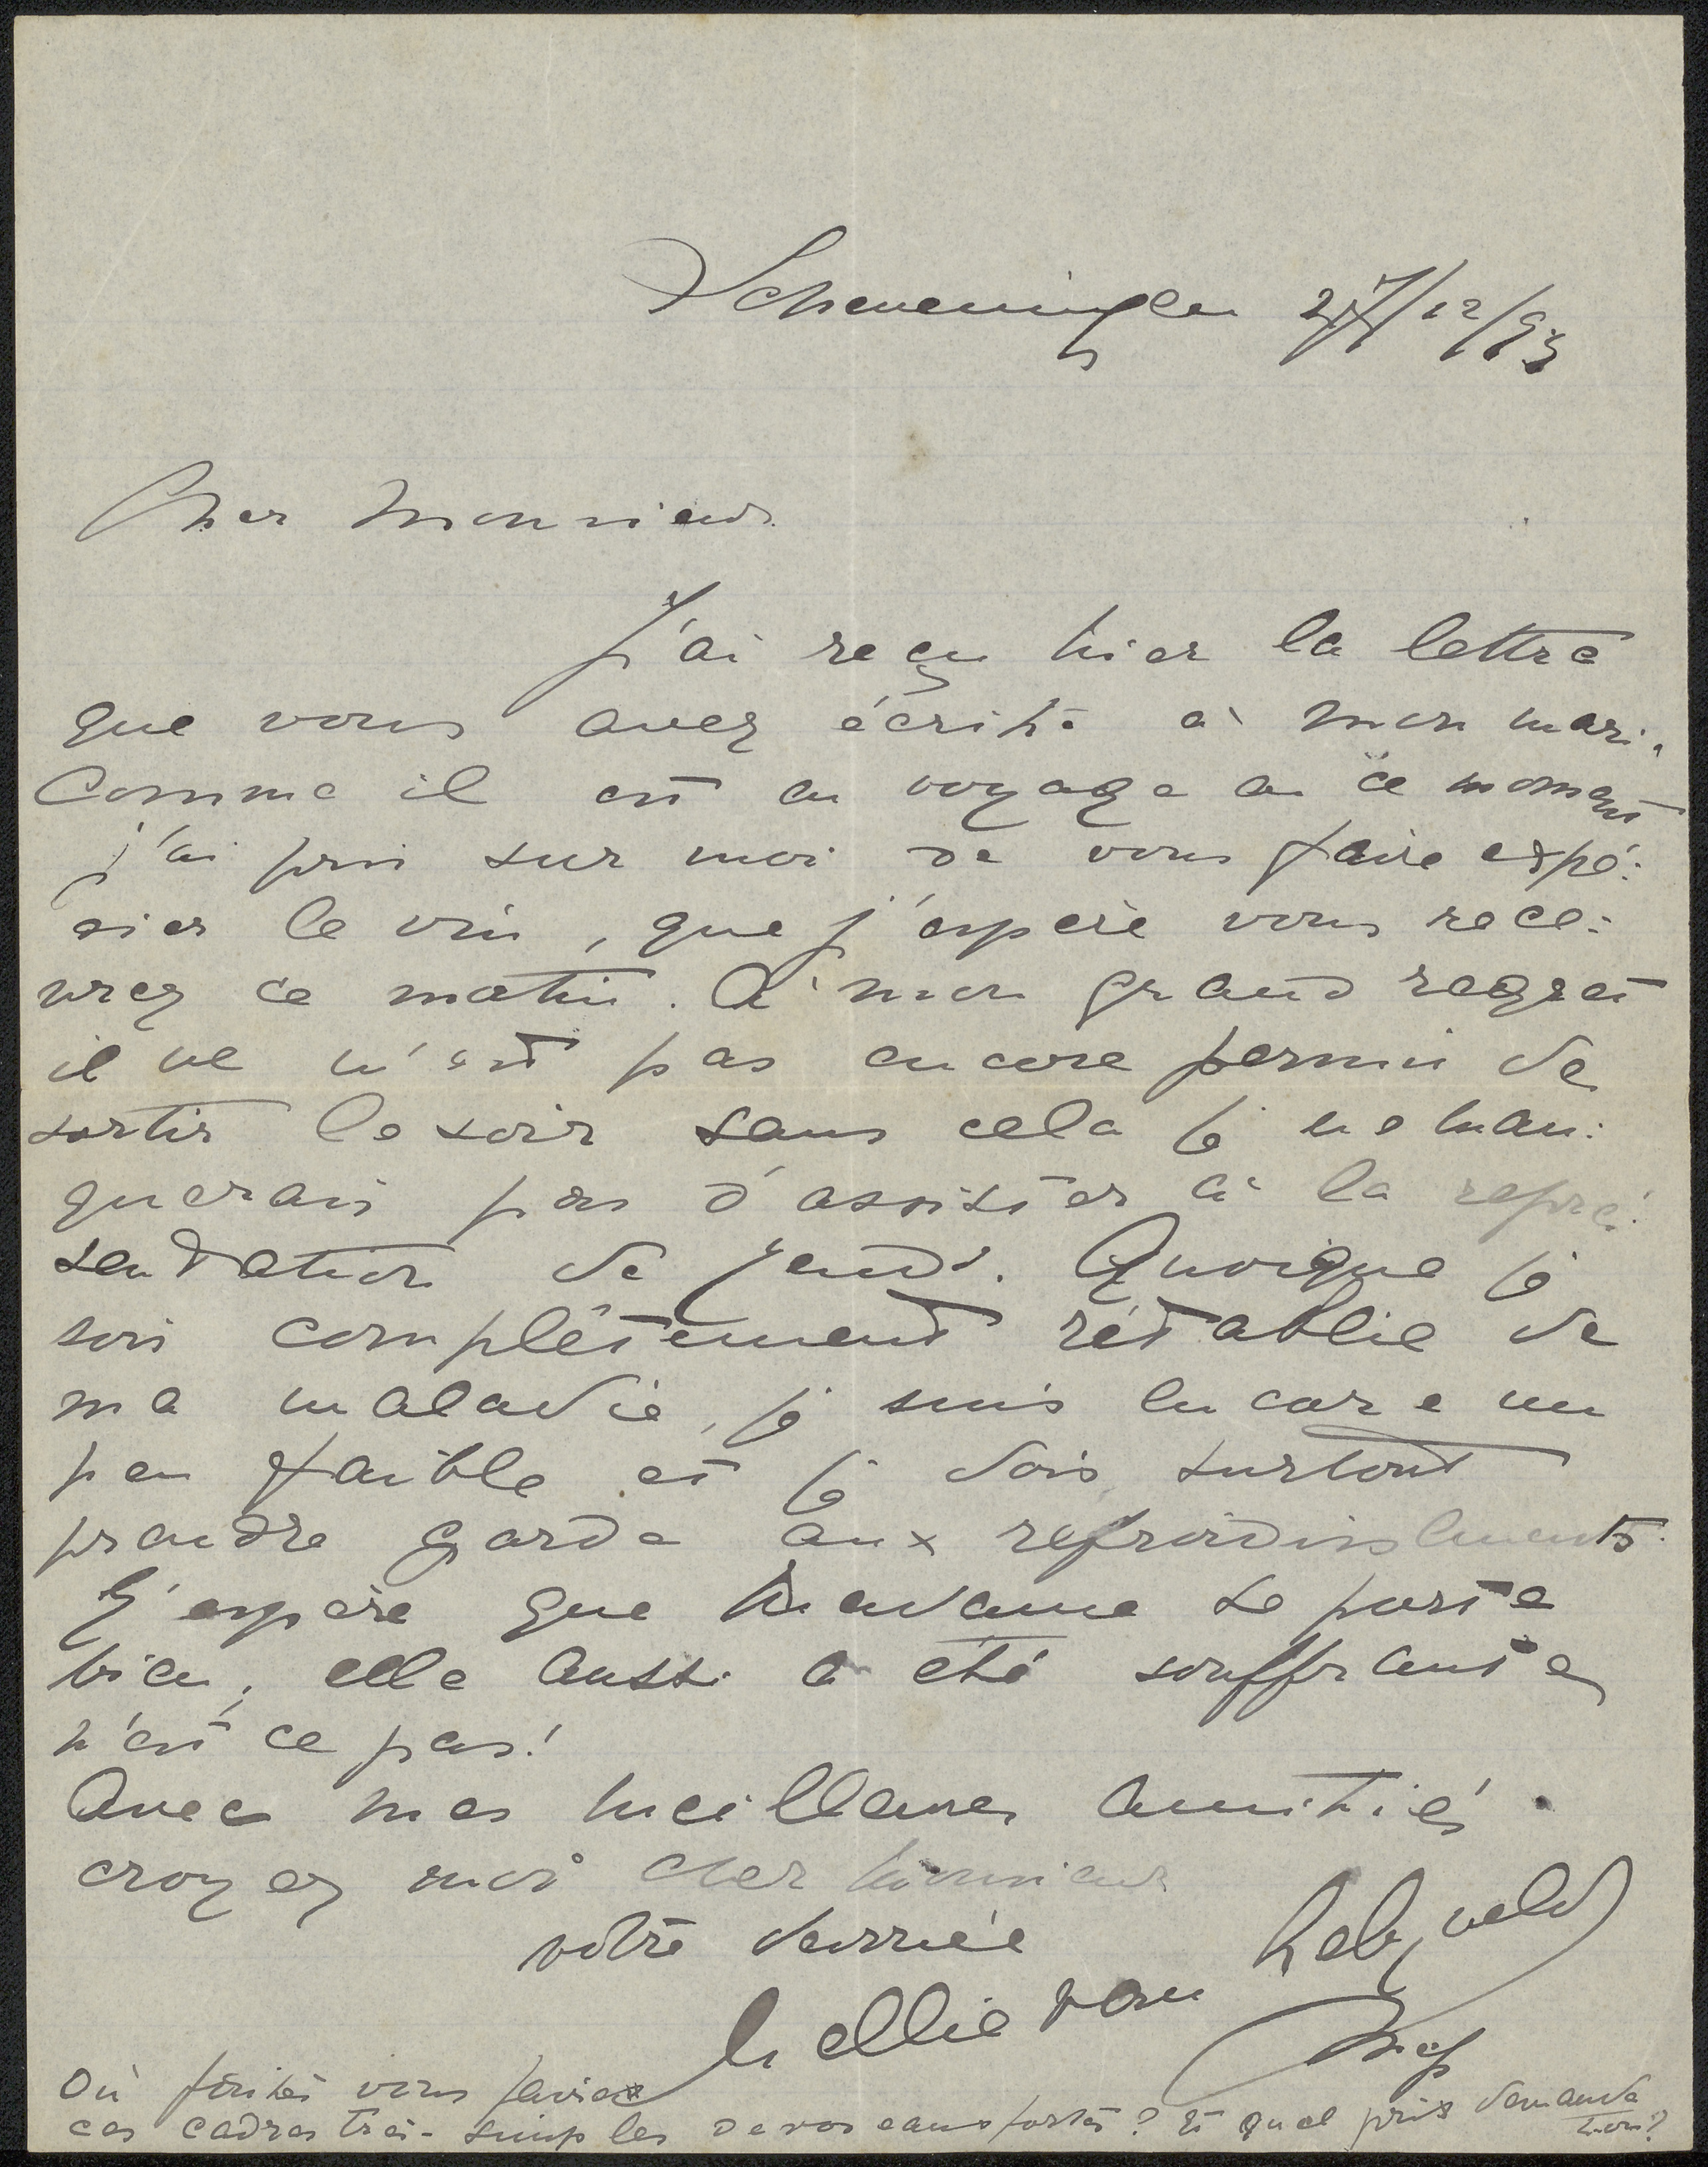 Scheveningen 27/12/93
Cher Monsieur
J'ai reçu hier la lettre
que vous avez écrite à mon mari.
Comme il est en voyage en ce moment
j'ai pris sur moi de vous faire expé:
dier le vin, que j'espère vous rece:
vrez ce matin. A mon grand regret
il ne m'est pas encore permis de
sortir le soir sans cela je ne man:
querais pas d'assister à la repré:
sentation de jeudi. Quoique je
sois complètement rétablie de
ma maladie, je suis encore un
peu faible et je dois surtout
prendre garde aux refroidissements.
J'espère que Madame se porte
bien, elle aussi a été souffrante
n'est ce pas!
Avec mes meilleures amitiés
croyez moi cher monsieur
votre dévouée
Mellie van
Où faites vous faire
ces cadres très-simples de vos eaux fortes? Et quel prix demande
t-on?